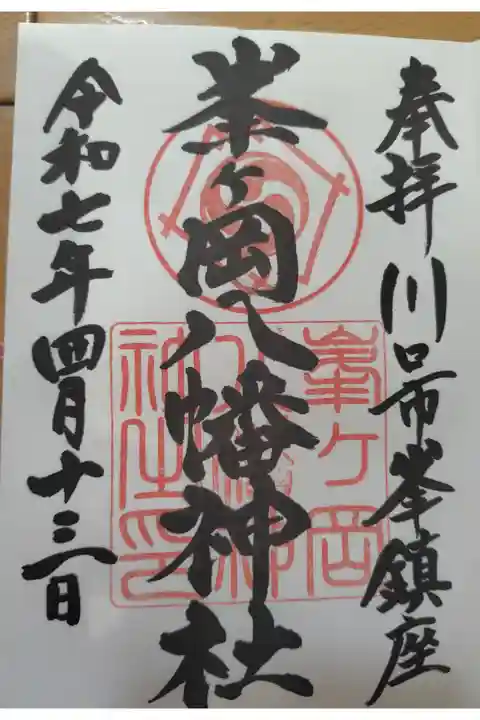 奉拝 川口市峯鎮座
峯ヶ岡八幡神社
令和七年四月十三日
峯ヶ岡
八幡神
社之印